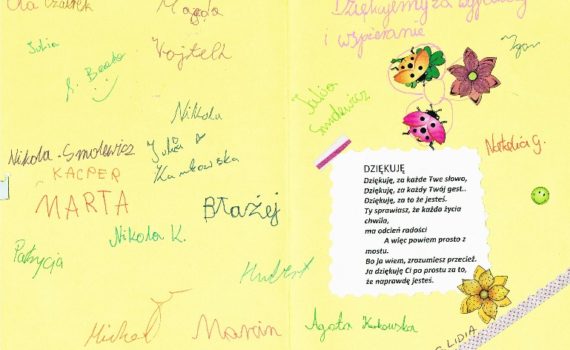 Ola
Magda
Julia
Wojtek
S. Beata
Nikola
Nikola Smolewicz
Julia
Kamkowska
KACPER
MARTA
Błażej
Nikola K.
Patrycja
Hubert
Michał
Marcin
Dziękujemy za
i wspieranie
Igor
Julia
Smolewicz
Natalia G.
DZIĘKUJĘ
Dziękuję, za każde Twe słowo,
Dziękuję, za każdy Twój gest..
Dziękuję, za to że jesteś.
Ty sprawiasz, że każda życia
chwila,
ma odcień radości
A więc powiem prosto z
mostu.
Bo ja wiem, zrozumiesz przecież.
Ja dziękuję Ci po prostu za to,
że naprawdę jesteś.
Agata
LIDIA